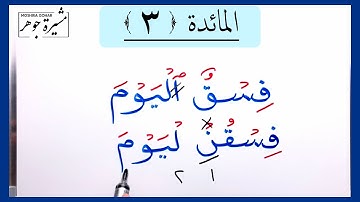 MOSHIRA GOHAR
مشيرة جوهر
المائدة ﴿ ٣ ﴾
فِسْقٌ الْيَوْمَ
فِسْقُنِ لْيَوْمَ
١ ٢